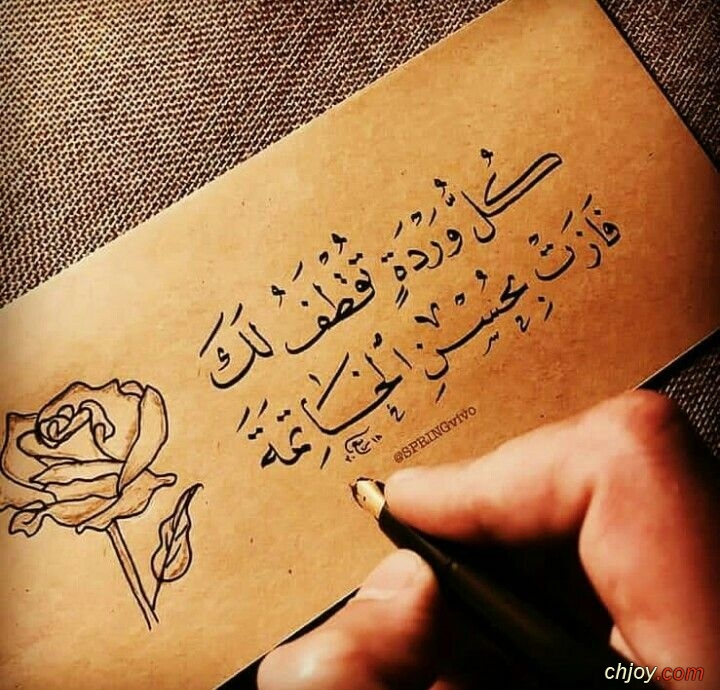 كُلُّ وَرْدَةٍ تُقْطَفُ لَكَ
فَازَتْ بِحُسْنِ الْخَاتِمَةَ
@SPRINGvivo
chjoy.com